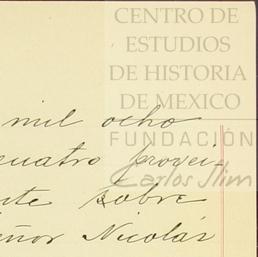 CENTRO DE
ESTUDIOS
DE HISTORIA
DE MEXICO
mil ocho
FUNDACIÓN
cuatro provei-
Carlos Slim
nte sobre
eñor Nicolás